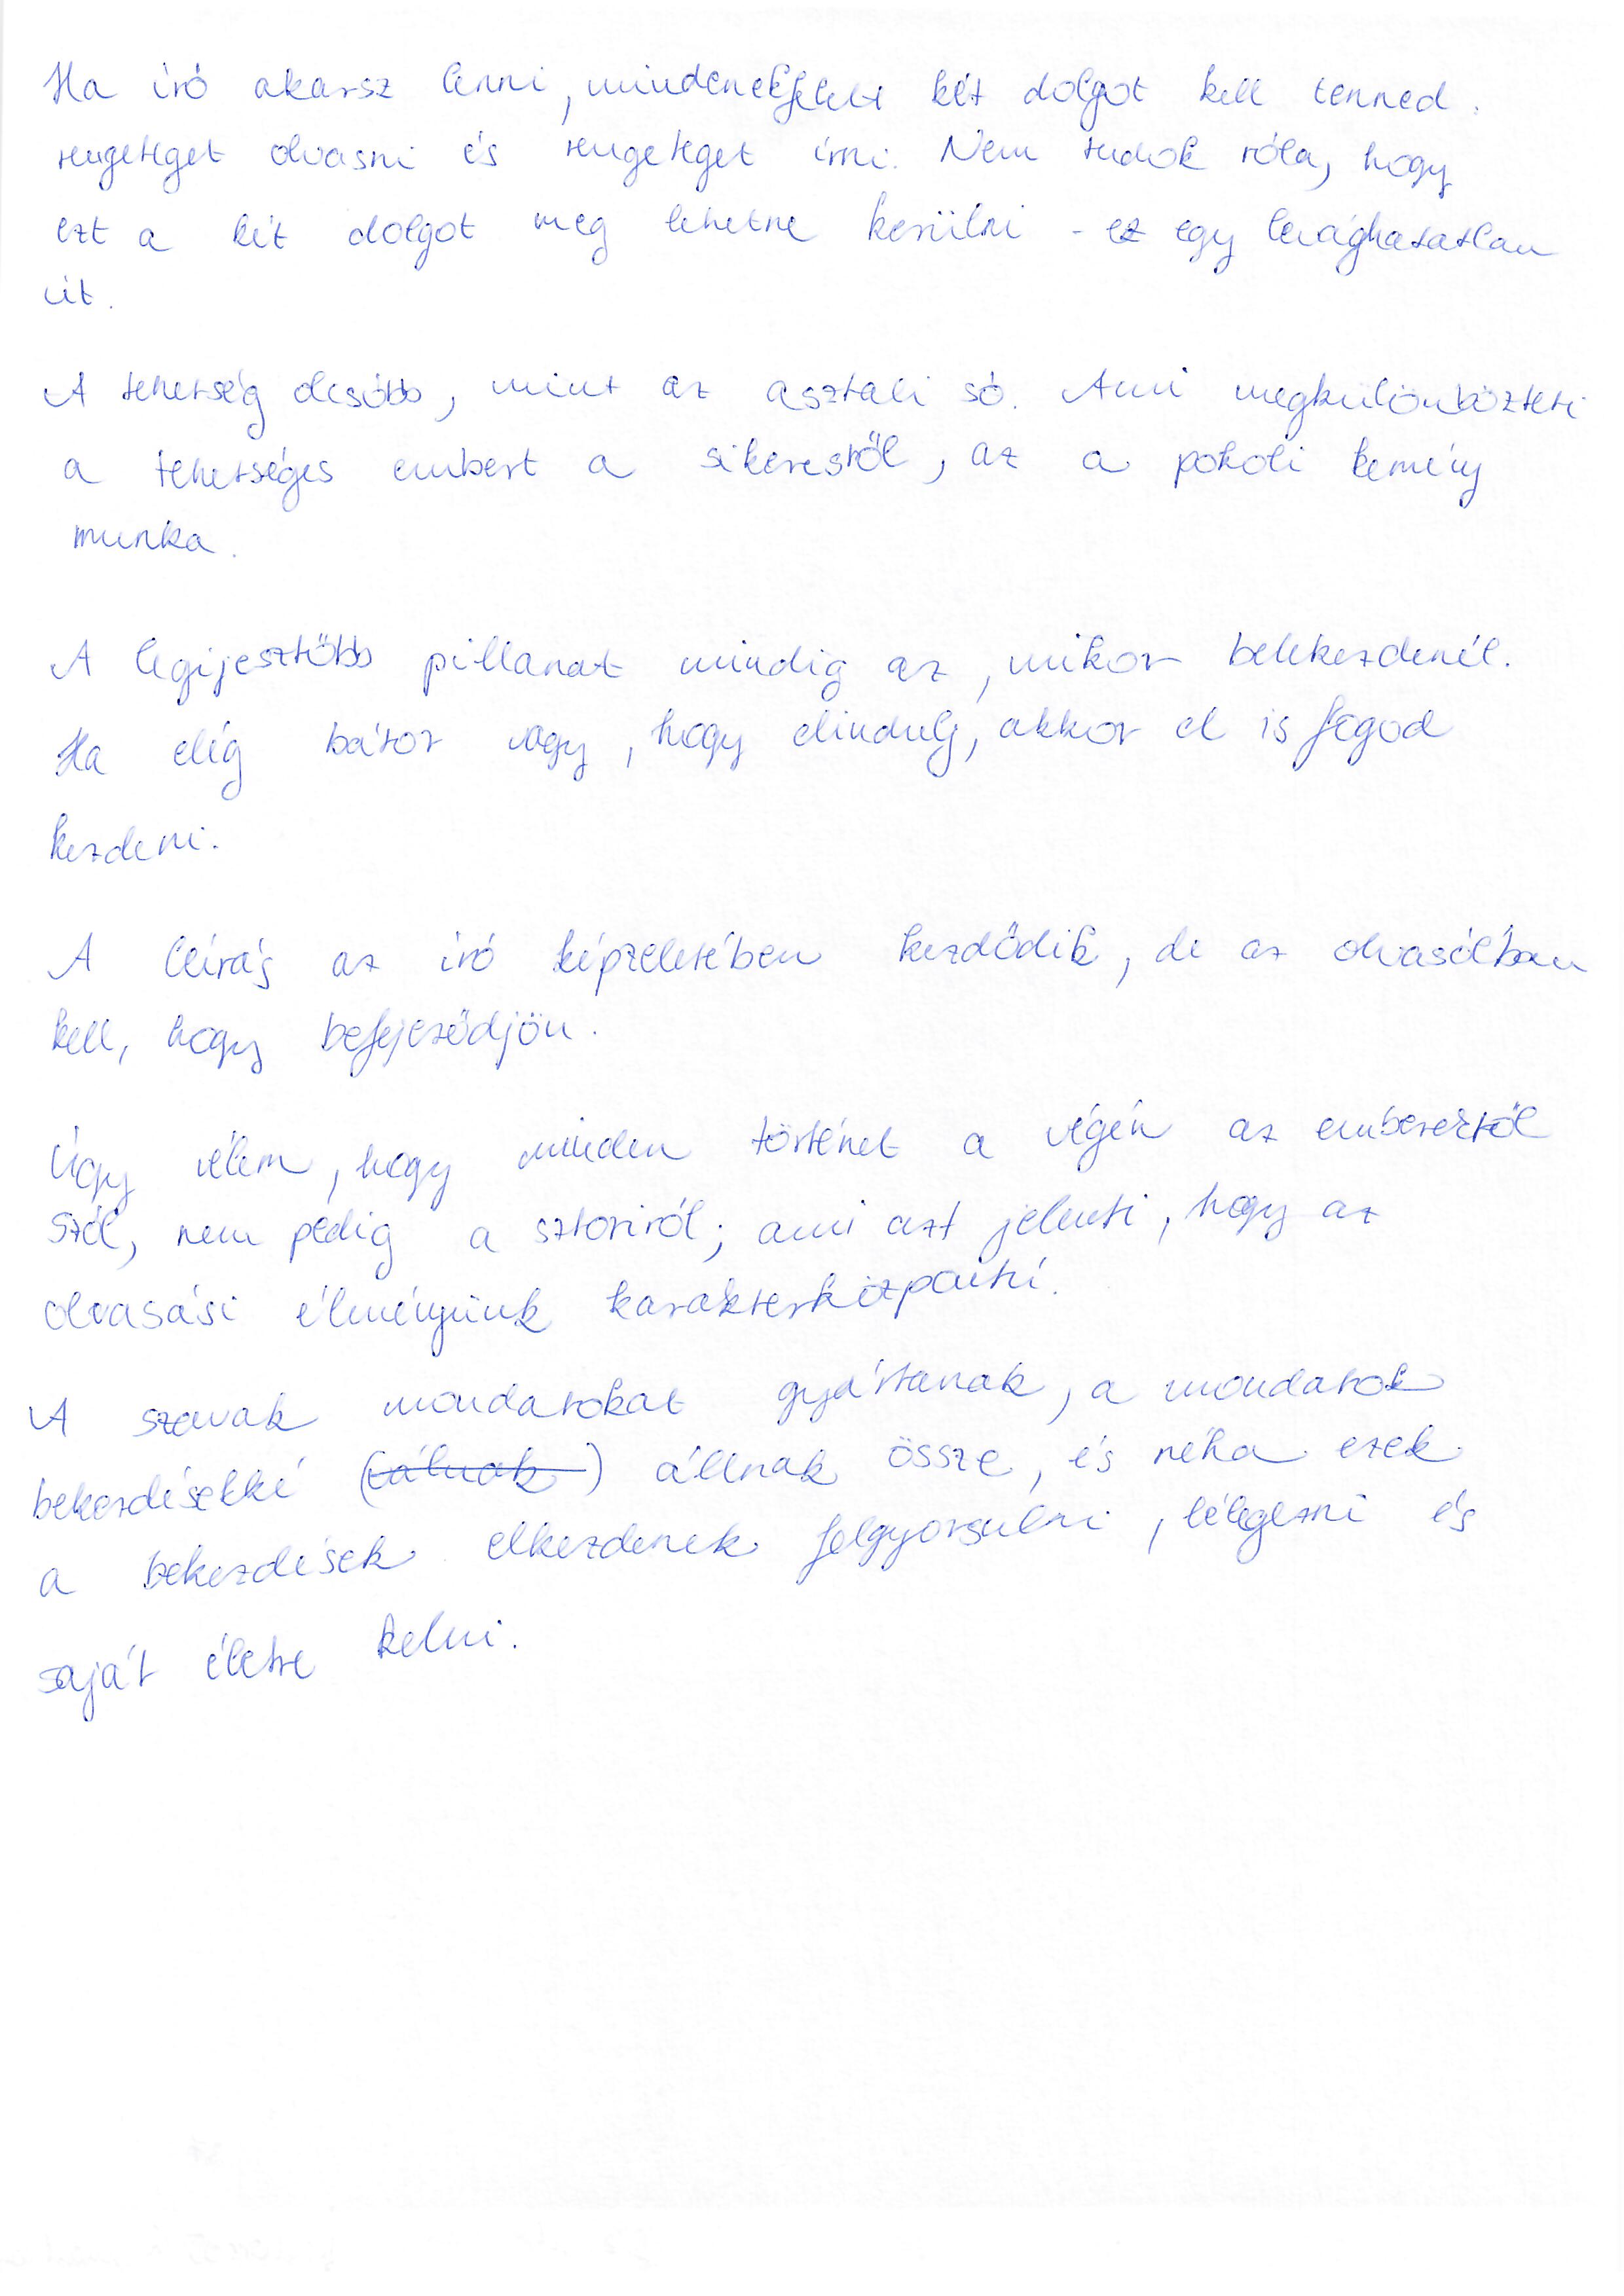 Ha író akarsz lenni, mindenekfelett két dolgot kell tenned:
rengeteget olvasni és rengeteget írni. Nem tudok róla, hogy
ezt a két dolgot meg lehetne kerülni - ez egy levághatatlan
út.
A tehetség olcsóbb, mint az asztali só. Ami megkülönbözteti
a tehetséges embert a sikerestől, az a pokoli kemény
munka.
A legijesztőbb pillanat mindig az, mikor belekezdenél.
Ha elég bátor vagy, hogy elindulj, akkor el is fogod
kezdeni.
A leírás az író képzeletében kezdődik, de az olvasóéban
kell, hogy befejeződjön.
Úgy vélem, hogy minden történet a végén az emberektől
szól, nem pedig a sztoriról; ami azt jelenti, hogy az
olvasási élményünk karakterközpontú.
A szavak mondatokat gyártanak, a mondatok
bekezdésekké (válnak) állnak össze, és néha ezek
a bekezdések elkezdenek felgyorsulni, lélegezni és
saját életre kelni.